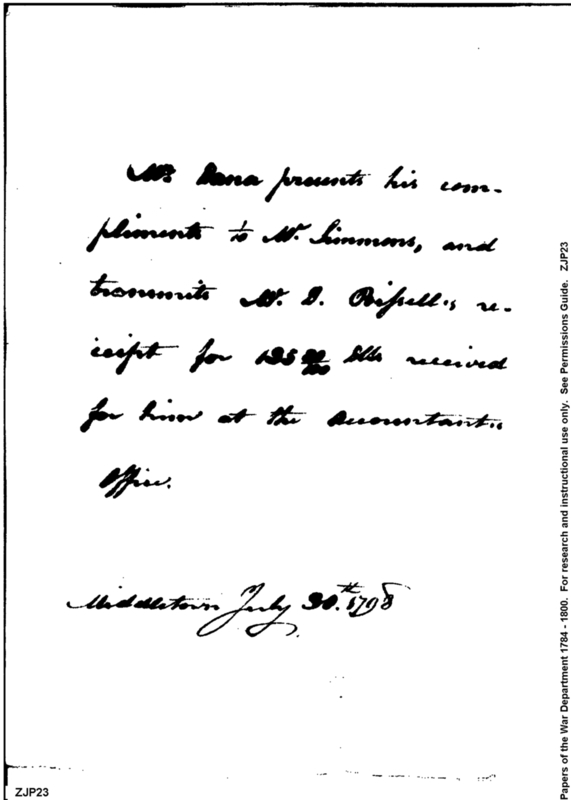 Mr. Dana presents his com-
pliments to Mr. Simmons, and
transmits Mr. D. Bissell's re-
ceipt for Dlls received
for him at the Accountant's
Office.
Middletown July 30.th 1798
ZJP23
Papers of the War Department 1784 - 1800. For research and instructional use only. See Permissions Guide. ZJP23